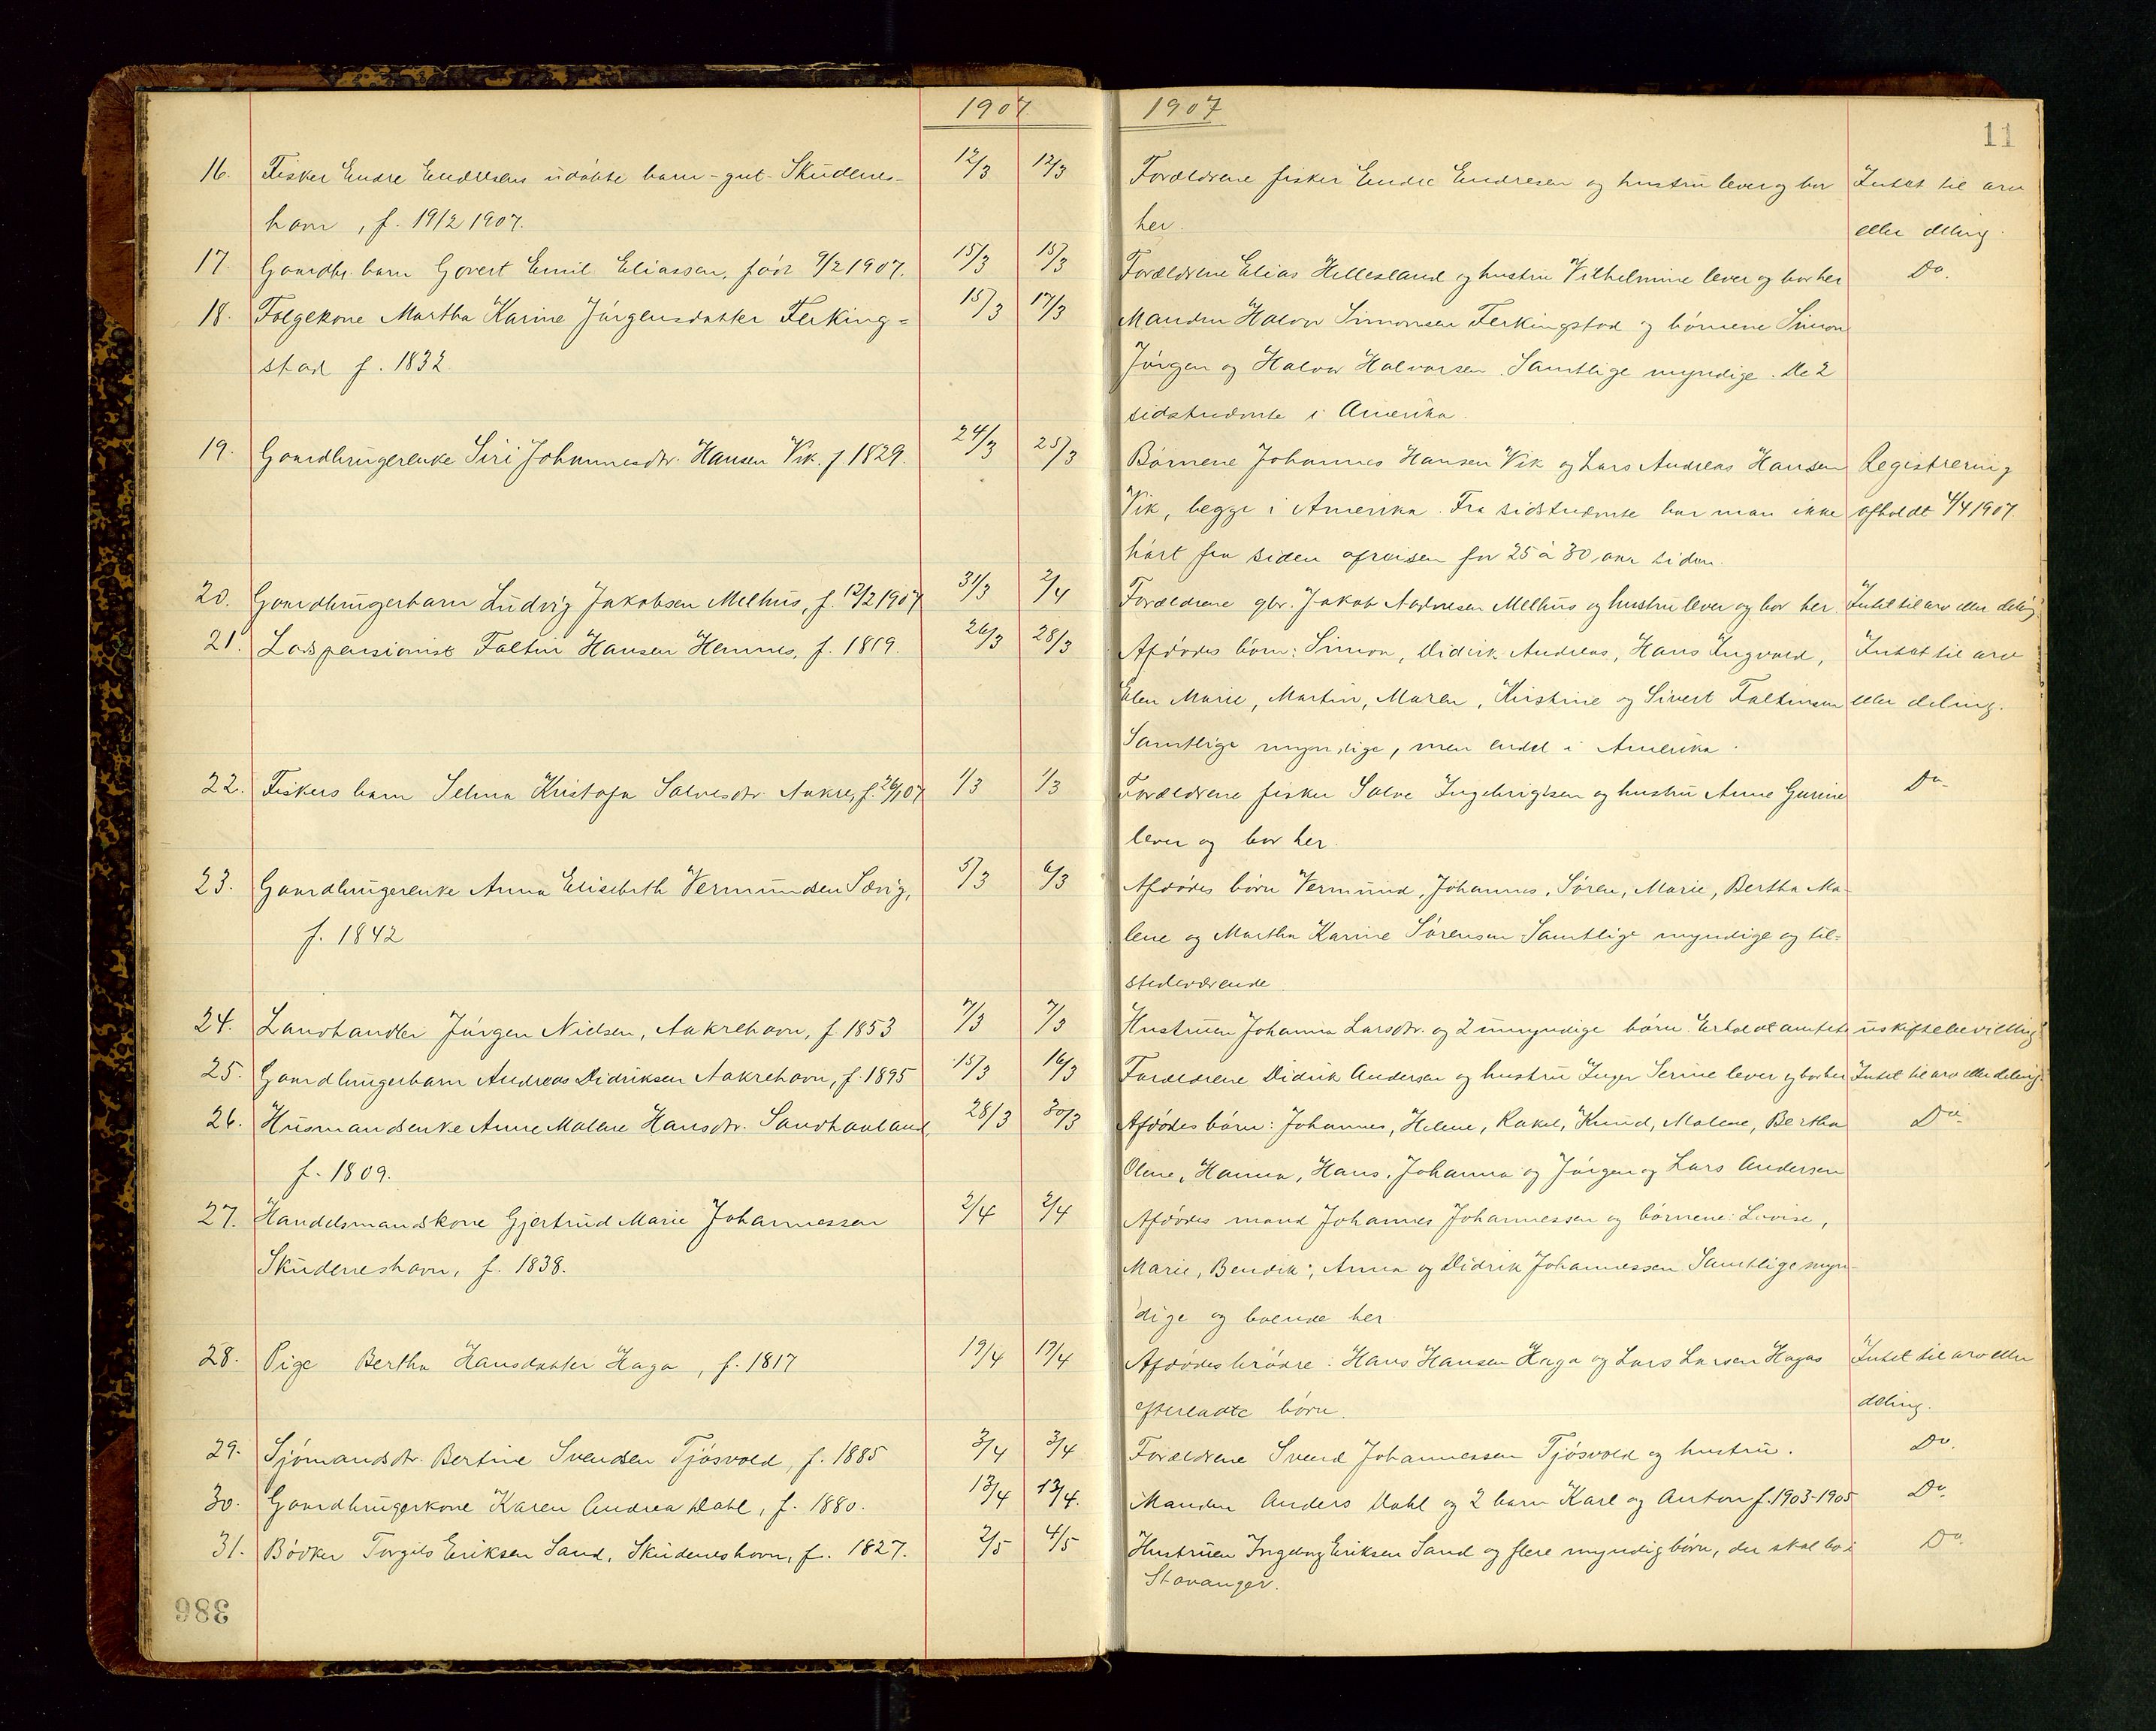 1907
1907
11
16. Fisker Endre Endresens udøbte barn - gut - Skudenes- 12/3 12/3 Forældrene fisker Endre Endresen og hustru lever og bor Intet til arv
havn, f. 19/2 1907. her. eller deling.
17. Gaardbr. barn Govert Emil Eliassen, født 9/2 1907. 15/3 15/3 Forældrene Elias Hillesland og hustru Vilhelmine lever og bor her Do.
18. Folgekone Martha Karine Jørgensdatter Ferking= 15/3 17/3 Manden Halvor Simonsen Ferkingstad og børnene Simon
stad f. 1832 Jørgen og Halvor Halvorsen. Samtlige myndige. De 2
sidstnævnte i Amerika.
19. Gaardbrugerenke Siri Johannesdtr. Hansen Vik. f 1829. 24/3 25/3 Børnene Johannes Hansen Vik og Lars Andreas Hansen Registrering
Vik, begge i Amerika. Fra sidstnævnte har man ikke afholdt 4/4 1907.
hørt fra siden afreisen for 25 à 30 aar siden.
20. Gaardbrugerbarn Ludvig Jakobsen Melhus, f. 12/2 1907 31/3 2/4 Forældrene gbr. Jakob Melhus og hustru lever og bor her. Intet til arv eller deling.
21. Lodspensionist Faltin Hansen Hemnes, f. 1819. 26/3 28/3 Afdødes børn: Simon, Didrik Andreas, Hans Ingvald, Intet til arv
Elen Marie, Martin, Maren, Kristine og Sivert Faltinsen eller deling.
Samtlige myndige, men endel i Amerika.
22. Fiskers barn Selma Kristofa Salvesdtr. Aakre, f. 26/1 07 1/3 1/3 Forældrene fisker Salve Ingebrigtsen og hustru Anne Gurine Do.
lever og bor her.
23. Gaardbrugerenke Anna Elisebeth Vermundsen Sævig, 5/3 6/3 Afdødes børn Vermund, Johannes, Søren, Marie, Bertha Ma-
f. 1842 lene og Martha Karine Sørensen. Samtlige myndige og til=
stedeværende.
24. Landhandler Jørgen Nielsen, Aakrehavn, f 1853 7/3 7/3 Hustruen Johanna Larsdtr. og 2 umyndige børn. Erholdt amtets uskiftebevilling
25. Gaardbrugerbarn Andreas Didriksen Aakrehavn, f. 1895 15/3 16/3 Forældrene Didrik Andersen og hustru Inger Serine lever og bor her Intet til arv eller deling.
26. Husmandsenke Anne Malene Hansdtr. Sandhaaland, 28/3 30/3 Afdødes børn: Johannes, Helene, Rakel, Knud, Malene, Bertha Do.
f. 1809. Oline, Hanna, Hans, Johanna og Jørgen og Lars Andersen
27. Handelsmandskone Gjertrud Marie Johannessen 2/4 2/4 Afdødes mand Johannes Johannessen og børnene: Lovise,
Skudeneshavn, f. 1838. Marie, Bendik, Anna og Didrik Johannessen Samtlige myn-
dige og boende her
28. Pige Bertha Hansdatter Haga, f. 1817 19/4 19/4 Afdødes brødre: Hans Hansen Haga og Lars Larsen Hagas Intet til arv eller
efterladte børn. deling.
29. Sjømandsdtr. Bertine Svendsen Tjøsvold, f. 1885 3/4 3/4 Forældrene Svend Johannessen Tjøsvold og hustru. Do.
30. Gaardbrugerkone Karen Andrea Dahl, f. 1880. 13/4 13/4. Manden Anders Dahl og 2 barn Karl og Anton f. 1903-1905 Do.
31. Bødker Torgils Eriksen Sand, Skudeneshavn, f. 1827. 2/5 4/5 Hustruen Ingeborg Eriksen Sand og flere myndig børn, der skal bo i Do.
Stavanger.
386